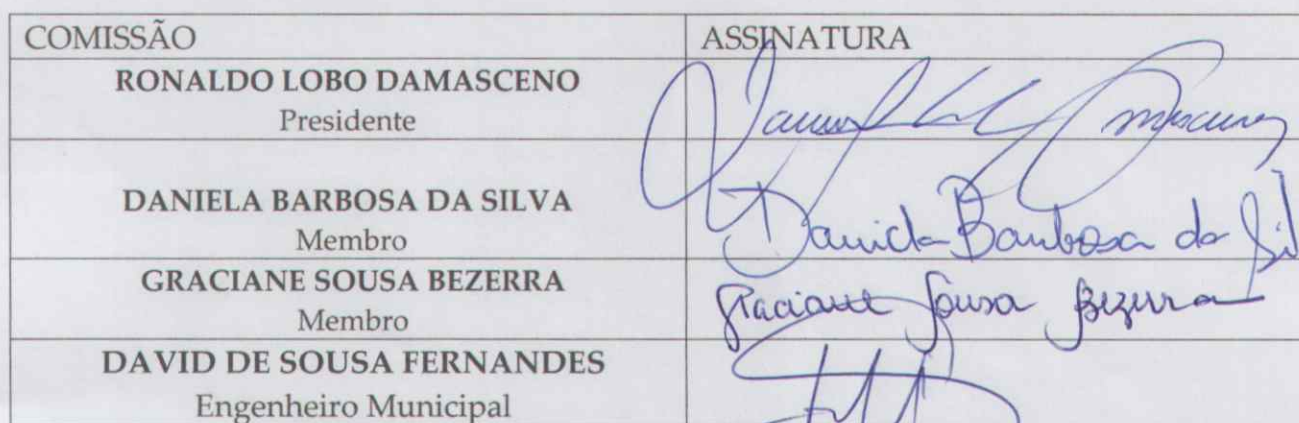 COMISSÃO ASSINATURA
RONALDO LOBO DAMASCENO
Presidente
DANIELA BARBOSA DA SILVA
Membro
Daniela Barbosa da Sil
GRACIANE SOUSA BEZERRA
Membro
Graciane Sousa Bezerra
DAVID DE SOUSA FERNANDES
Engenheiro Municipal